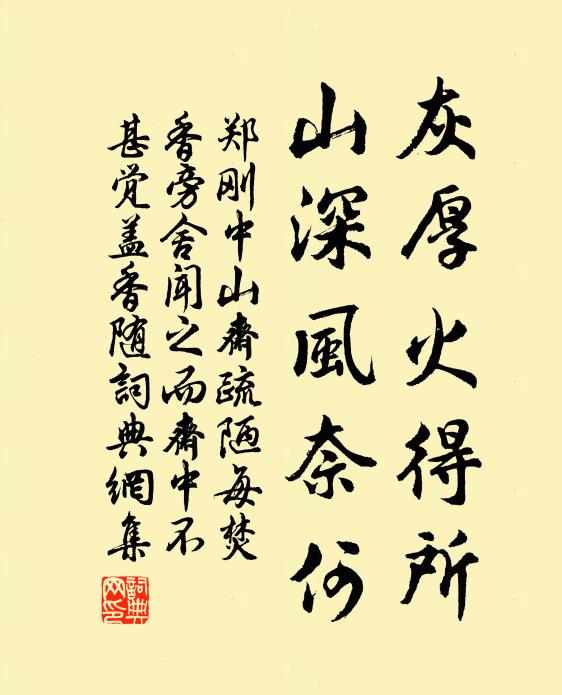 灰厚火得所
山深風奈何
郑刚中山齋疏陋每焚
香旁舍闻之而齋中不
甚觉盖香随詞典網集